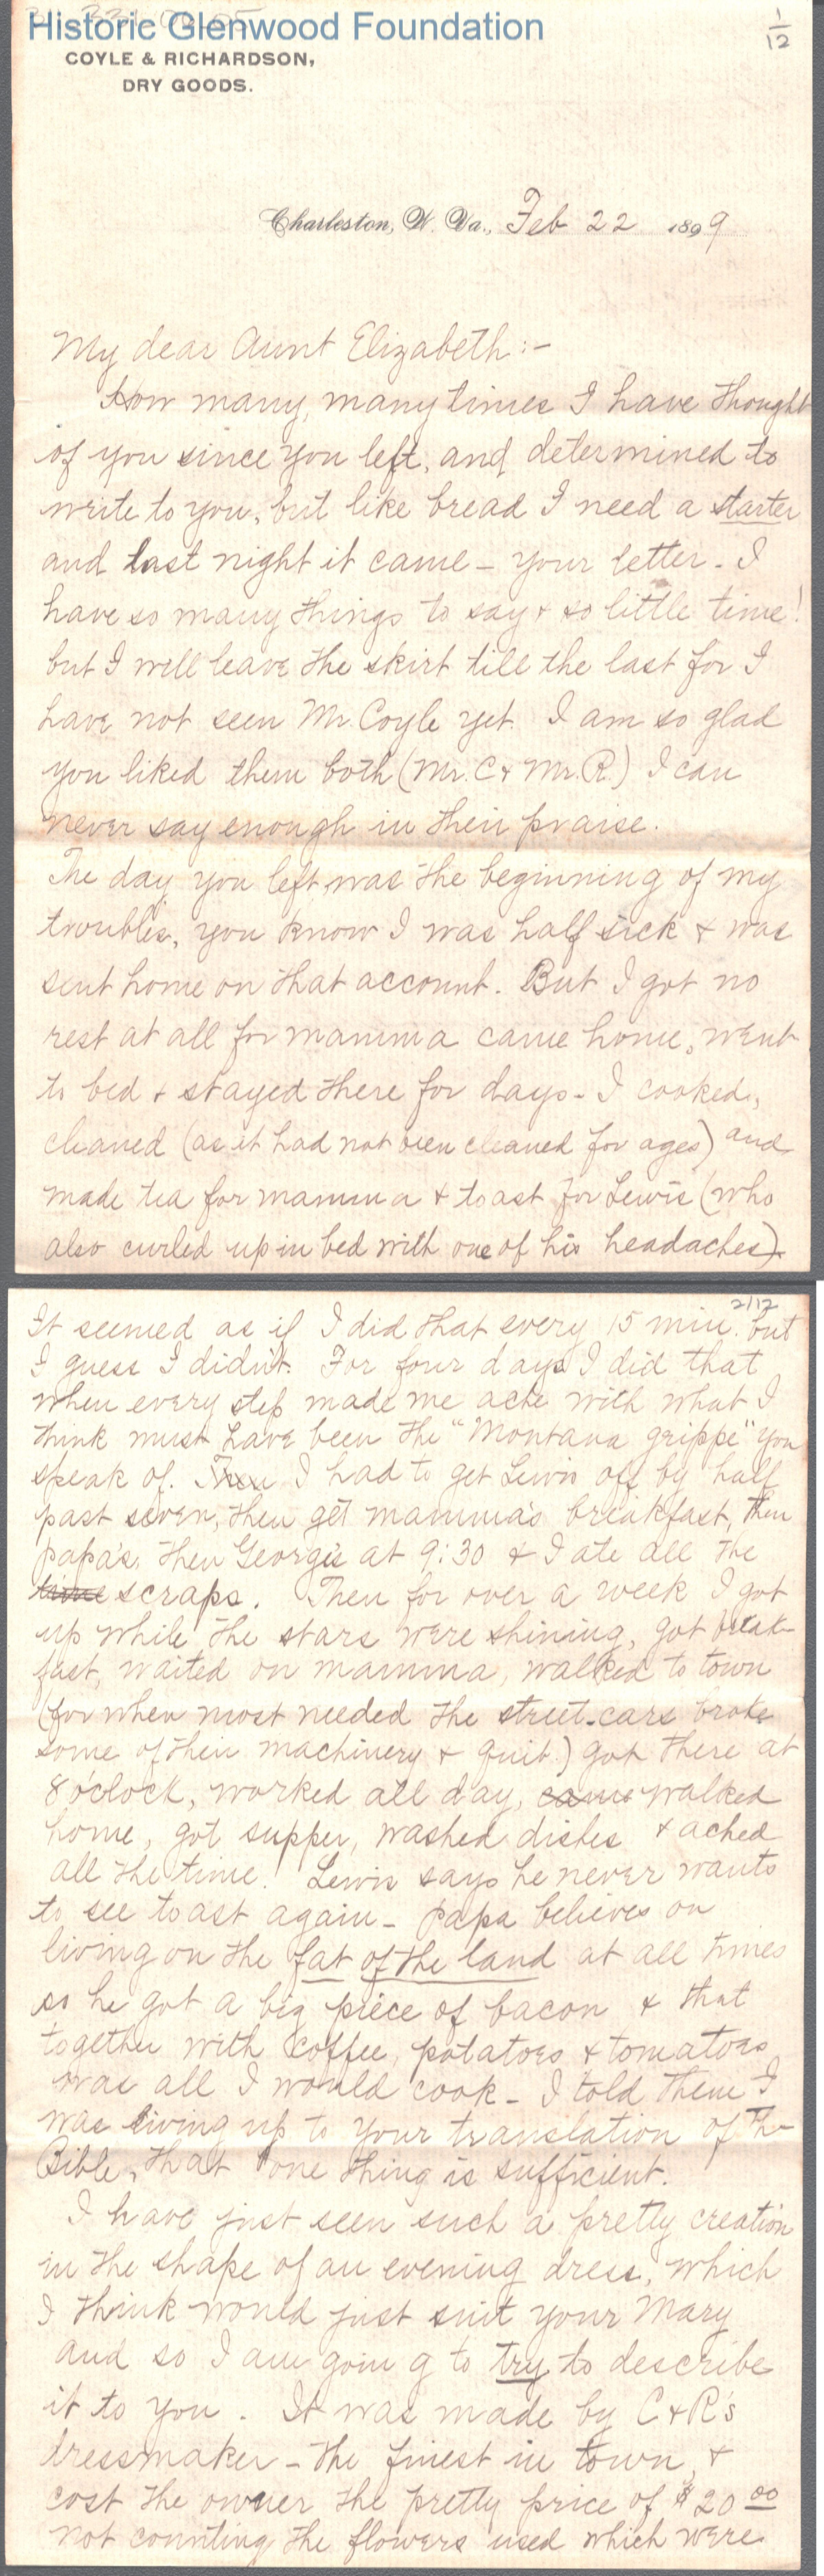 Historic Glenwood Foundation
1/12
COYLE & RICHARDSON,
DRY GOODS.
Charleston, W. Va., Feb 22 1899
My dear Aunt Elizabeth:-
How many, many times I have thought
of you since you left, and determined to
write to you, but like bread I need a starter
and last night it came - your letter - I
have so many things to say & so little time!
but I will leave the skirt till the last for I
have not seen Mr. Coyle yet. I am so glad
you liked them both (Mr. C & Mr. R.) I can
never say enough in their praise.
The day you left, was the beginning of my
troubles, you know I was half sick & was
sent home on that account. But I got no
rest at all for mamma came home, went
to bed & stayed there for days - I cooked,
cleaned (as it had not been cleaned for ages) and
made tea for mamma & toast for Lewis (who
also curled up in bed with one of his headaches).
2/12
It seemed as if I did that every 15 min. but
I guess I didn't. For four days I did that
when every step made me ache with what I
think must have been the "Montana grippe" you
speak of. Then I had to get Lewis off by half
past seven, then get mamma's breakfast, then
papa's, then George's at 9:30 & I ate all the
time scraps. Then for over a week I got
up while the stars were shining, got break-
fast, waited on mamma, walked to town
(for when most needed the street-cars broke
some of their machinery & quit.) got there at
8 o'clock, worked all day, came walked
home, got supper, washed dishes & ached
all the time! Lewis says he never wants
to see toast again - papa believes on
living on the fat of the land at all times
so he got a big piece of bacon & that
together with coffee, potatoes & tomatoes
was all I would cook - I told them I
was living up to your translation of the
Bible, that one thing is sufficient.
I have just seen such a pretty creation
in the shape of an evening dress, which
I think would just suit your Mary
and so I am going to try to describe
it to you. It was made by C & R's
dressmaker - the finest in town, &
cost the owner the pretty price of $20.00
not counting the flowers used which were